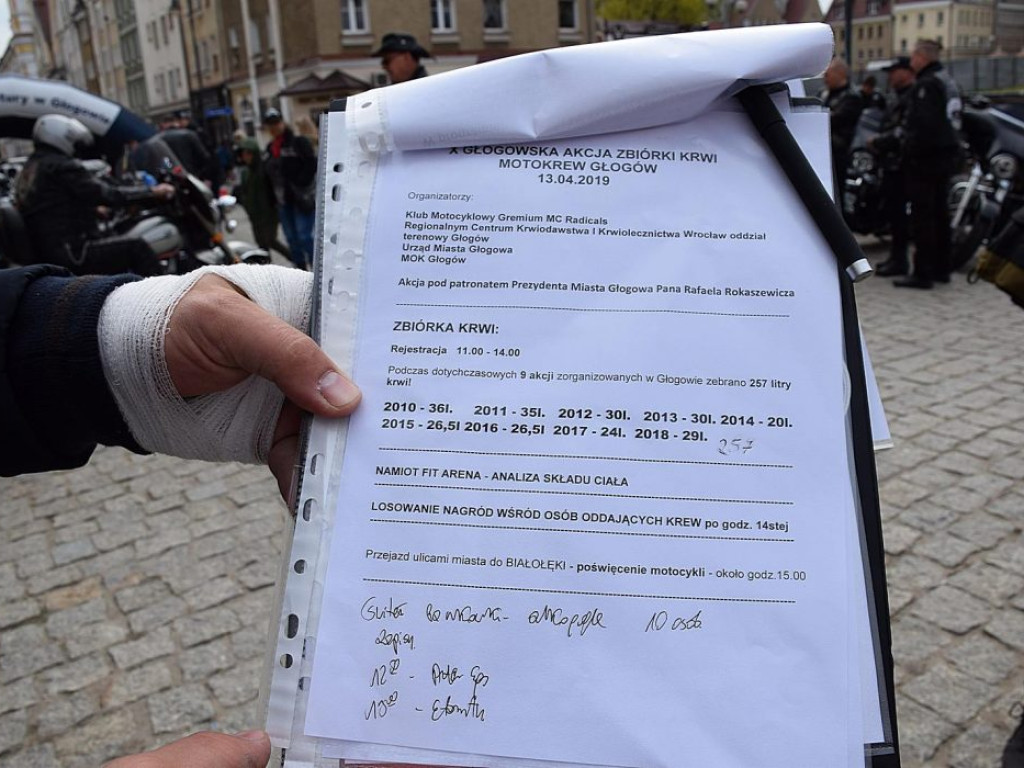 tory w Głogowie
X GŁOGOWSKA AKCJA ZBIÓRKI KRWI
MOTOKREW GŁOGÓW
13.04.2019
Organizatorzy:
Klub Motocyklowy Gremium MC Radicals
Regionalnym Centrum Krwiodawstwa I Krwiolecznictwa Wrocław oddział
terenowy Głogów
Urząd Miasta Głogowa
MOK Głogów
Akcja pod patronatem Prezydenta Miasta Głogowa Pana Rafaela Rokaszewicza
ZBIÓRKA KRWI:
Rejestracja 11.00 - 14.00
Podczas dotychczasowych 9 akcji zorganizowanych w Głogowie zebrano 257 litry
krwi!
2010 - 36l. 2011 - 35l. 2012 - 30l. 2013 - 30l. 2014 - 20l.
2015 - 26,5l 2016 - 26,5l 2017 - 24l. 2018 - 29l.
257
NAMIOT FIT ARENA - ANALIZA SKŁADU CIAŁA
LOSOWANIE NAGRÓD WŚRÓD OSÓB ODDAJĄCYCH KREW po godz. 14stej
Przejazd ulicami miasta do BIAŁOŁĘKI - poświęcenie motocykli - około godz.15.00
10 osób
zapisy
12⁰⁰ -
13⁰⁰ -